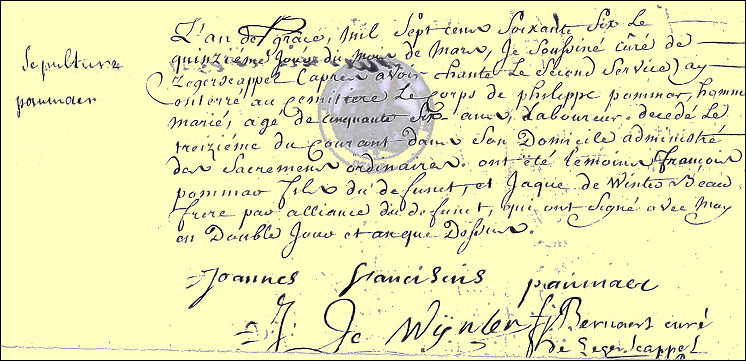 Sepulture
paumaer
L'an de grace, mil sept cens soixante six le
quinzieme jour du mois de Mars, Je soussiné curé de
Zegerscappel (apres avoir chanté le second service) ay
enterré au cemitiere le corps de philippe pommar, homme
marié, agé de cinquante six ans, Laboureur. decedé le
troiziéme du courant dans son Domicile administré
des Sacremens ordinaires. ont été témoins françois
pommar fils du defunct, et Jaque de Winter Beau
frere par alliance du defunct, qui ont signé avec moy
en Double jour et an que Dessus.
Joannes franciscus paumaer
J. De Wÿnter J Bernaert curé
de Zegerscappel